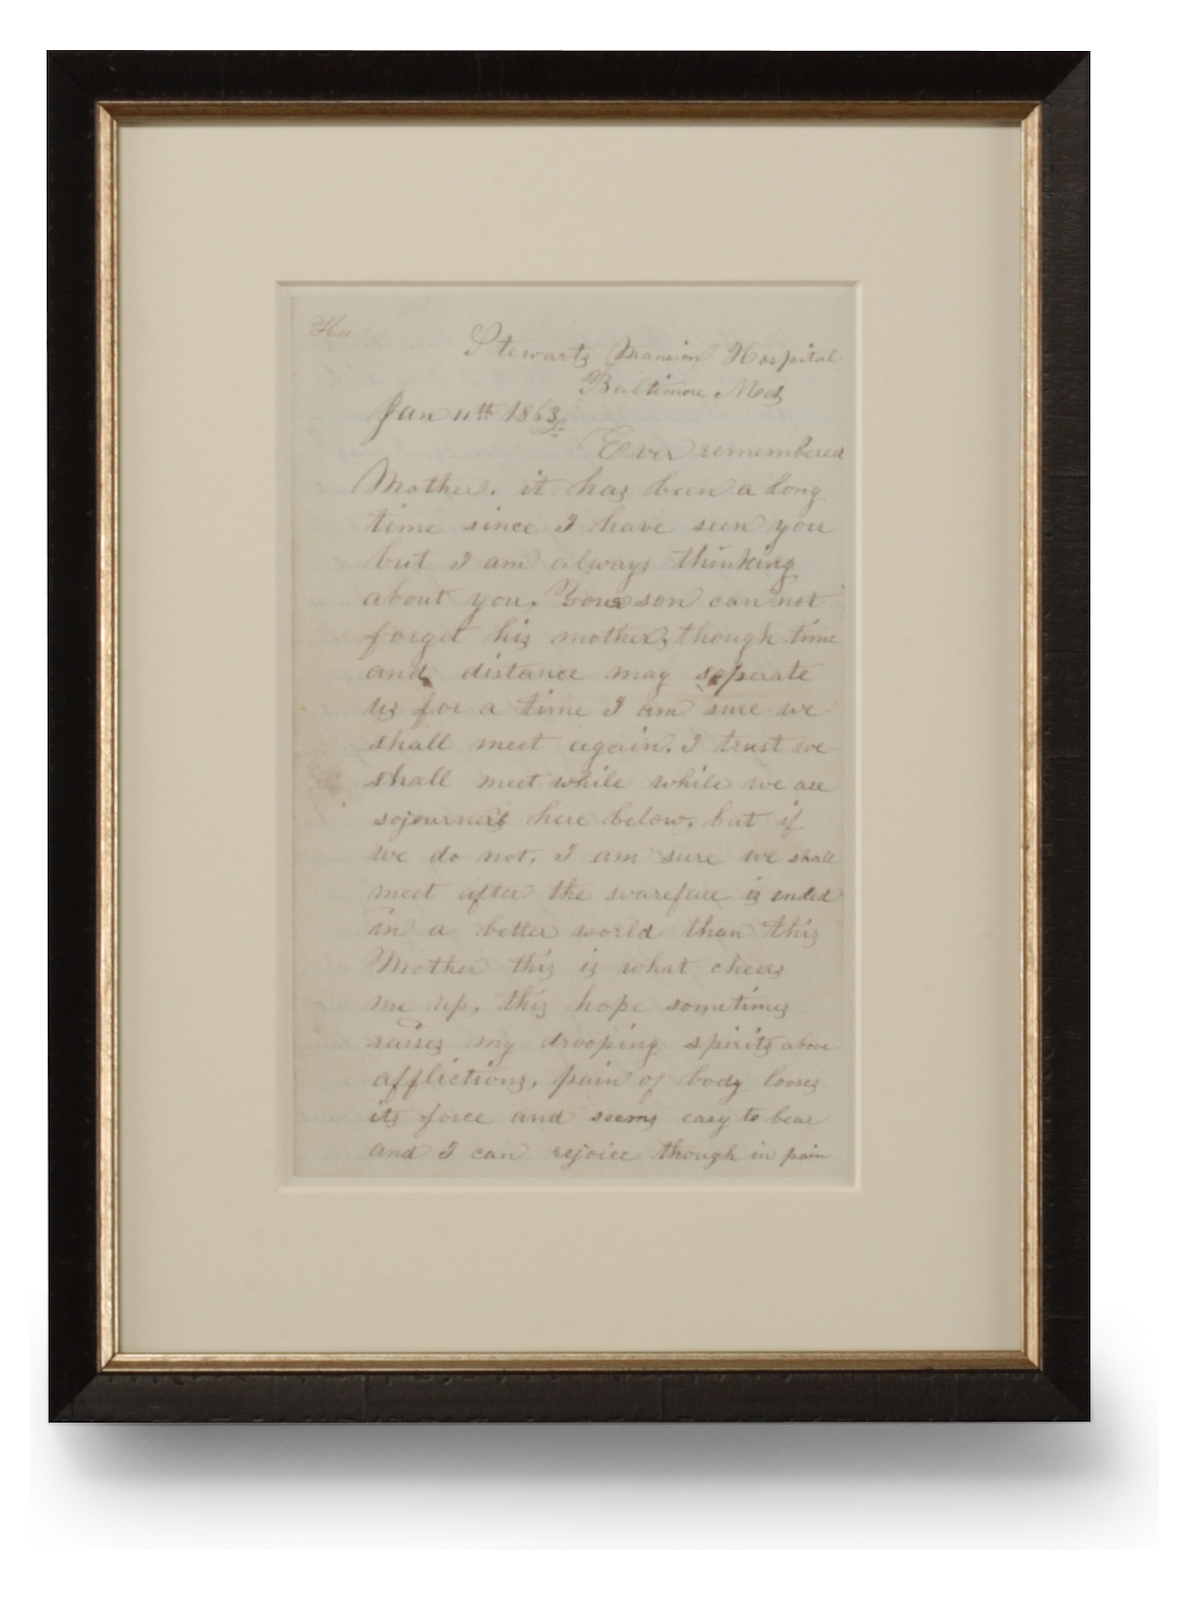 Stewarts Mansion Hospital
Baltimore Md
Jan 11th 1863
Ever remembered
Mother. it has been a long
time since I have seen you
but I am always thinking
about you. Your son can not
forget his mother, though time
and distance may seperate
us for a time I am sure we
shall meet again. I trust we
shall meet while while we are
sojourners here below. but if
we do not, I am sure we shall
meet after the warefare is ended
in a better world than this
Mother this is what cheers
me up, this hope sometimes
raises my drooping spirits above
afflictions, pain of body looses
its force and seems easy to bear
and I can rejoice though in pain